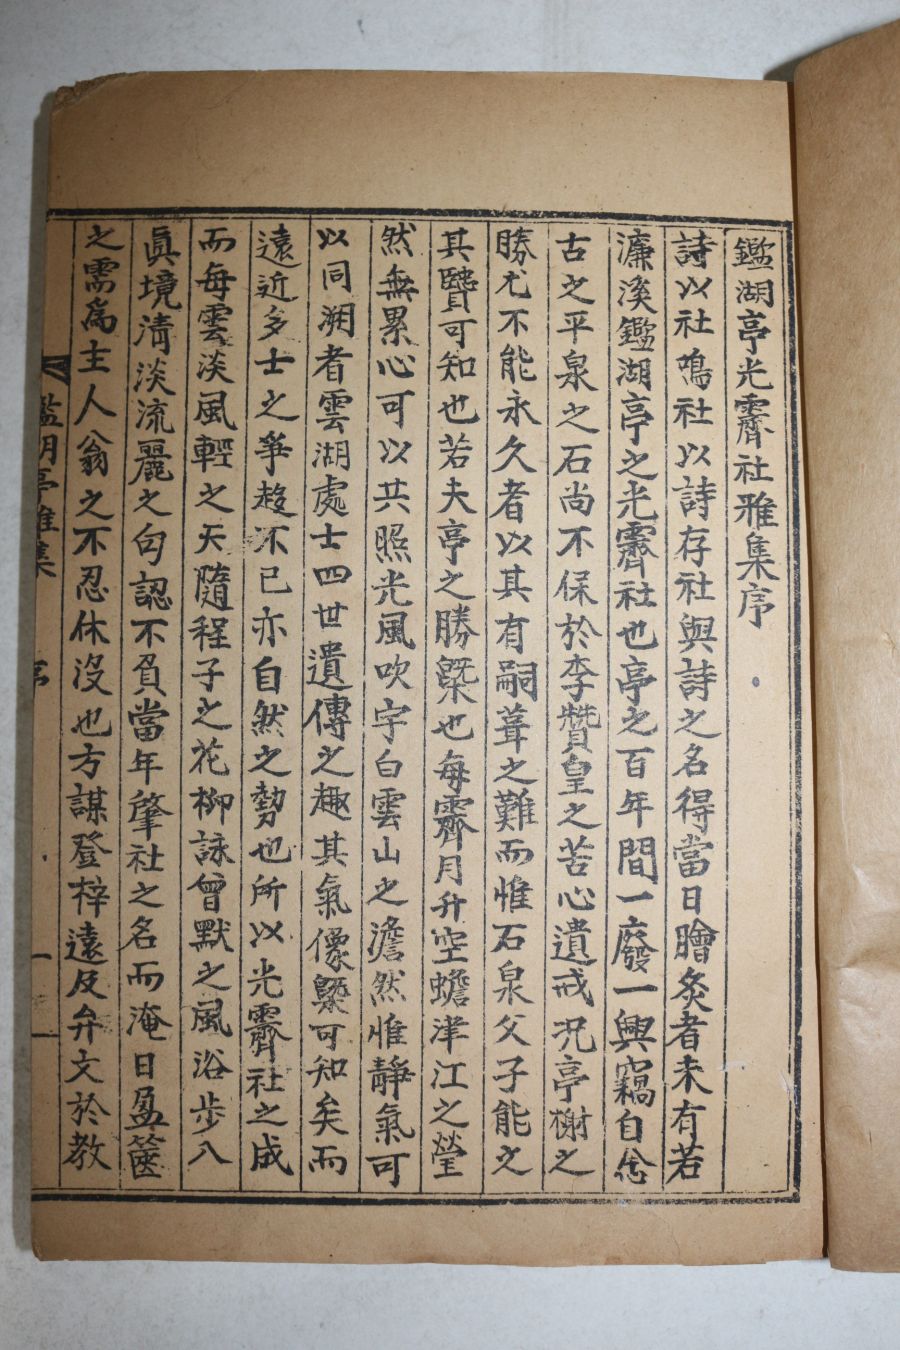 鑑湖亭光霽社雅集序
詩以社鳴社以詩存社與詩之名得當日膾炙者未有若
濂溪鑑湖亭之光霽社也亭之百年間一廢一興竊自念
古之平泉之石尚不保於李贊皇之苦心遺戒況亭榭之
勝尤不能永久者以其有嗣葺之難而惟石泉父子能之
其賢可知也若夫亭之勝槩也每霽月升空蟾津江之瑩
然無累心可以共照光風吹宇白雲山之澹然惟靜氣可
以同溯者雲湖處士四世遺傳之趣其氣像槩可知矣而
遠近多士之爭趍不已亦自然之勢也所以光霽社之成
而每雲淡風輕之天隨程子之花柳詠曾默之風浴步入
眞境淸淡流麗之句認不負當年肇社之名而淹日盈篋
之需爲主人翁之不忍休沒也方謀登梓遠及弁文於教
鑑湖亭雅集 序 一